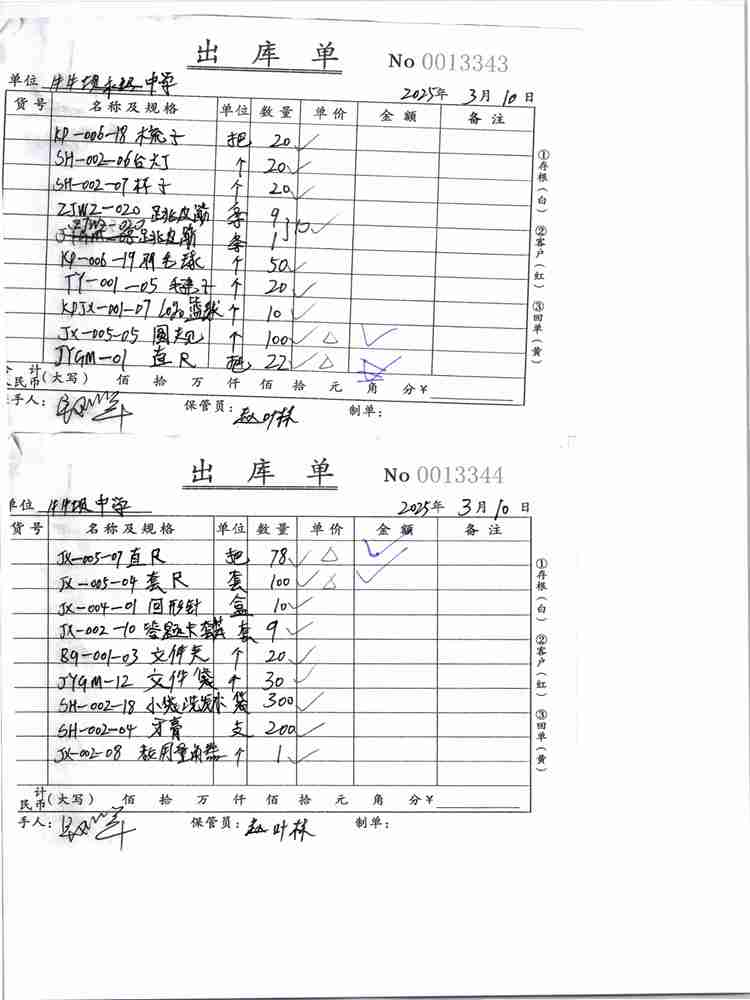 出 库 单 No 0013343
单位 中学 2025年 3月 10日
货号 名称及规格 单位 数量 单价 金额 备注
KP-006-18 梳子 把 20
SH-002-06 台灯 个 20
SH-002-07 杯子 个 20
ZJWZ-020 跳皮筋 条 9
ZJWZ-020 跳皮筋 条 1
KP-006-19 羽毛球 个 50
TY-001-05 毽子 个 20
KPJX-001-07 logo篮球 个 10
JX-005-05 圆规 个 100 △
JYGM-01 直尺 把 22 △
计
民币(大写) 佰 拾 万 仟 佰 拾 元 角 分¥
手人: 保管员: 赵叶林 制单:
①存根(白) ②客户(红) ③回单(黄)
出 库 单 No 0013344
单位 中学 2025年 3月 10日
货号 名称及规格 单位 数量 单价 金额 备注
JX-005-07 直尺 把 78 △
JX-005-04 套尺 套 100 △
JX-004-01 回形针 盒 10
JX-002-10 答题卡 套 9
BG-001-03 文件夹 个 20
JYGM-12 文件袋 个 30
SH-002-18 小袋洗发水 袋 300
SH-002-04 牙膏 支 200
JX-002-08 教用量角器 个 1
计
民币(大写) 佰 拾 万 仟 佰 拾 元 角 分¥
手人: 保管员: 赵叶林 制单:
①存根(白) ②客户(红) ③回单(黄)